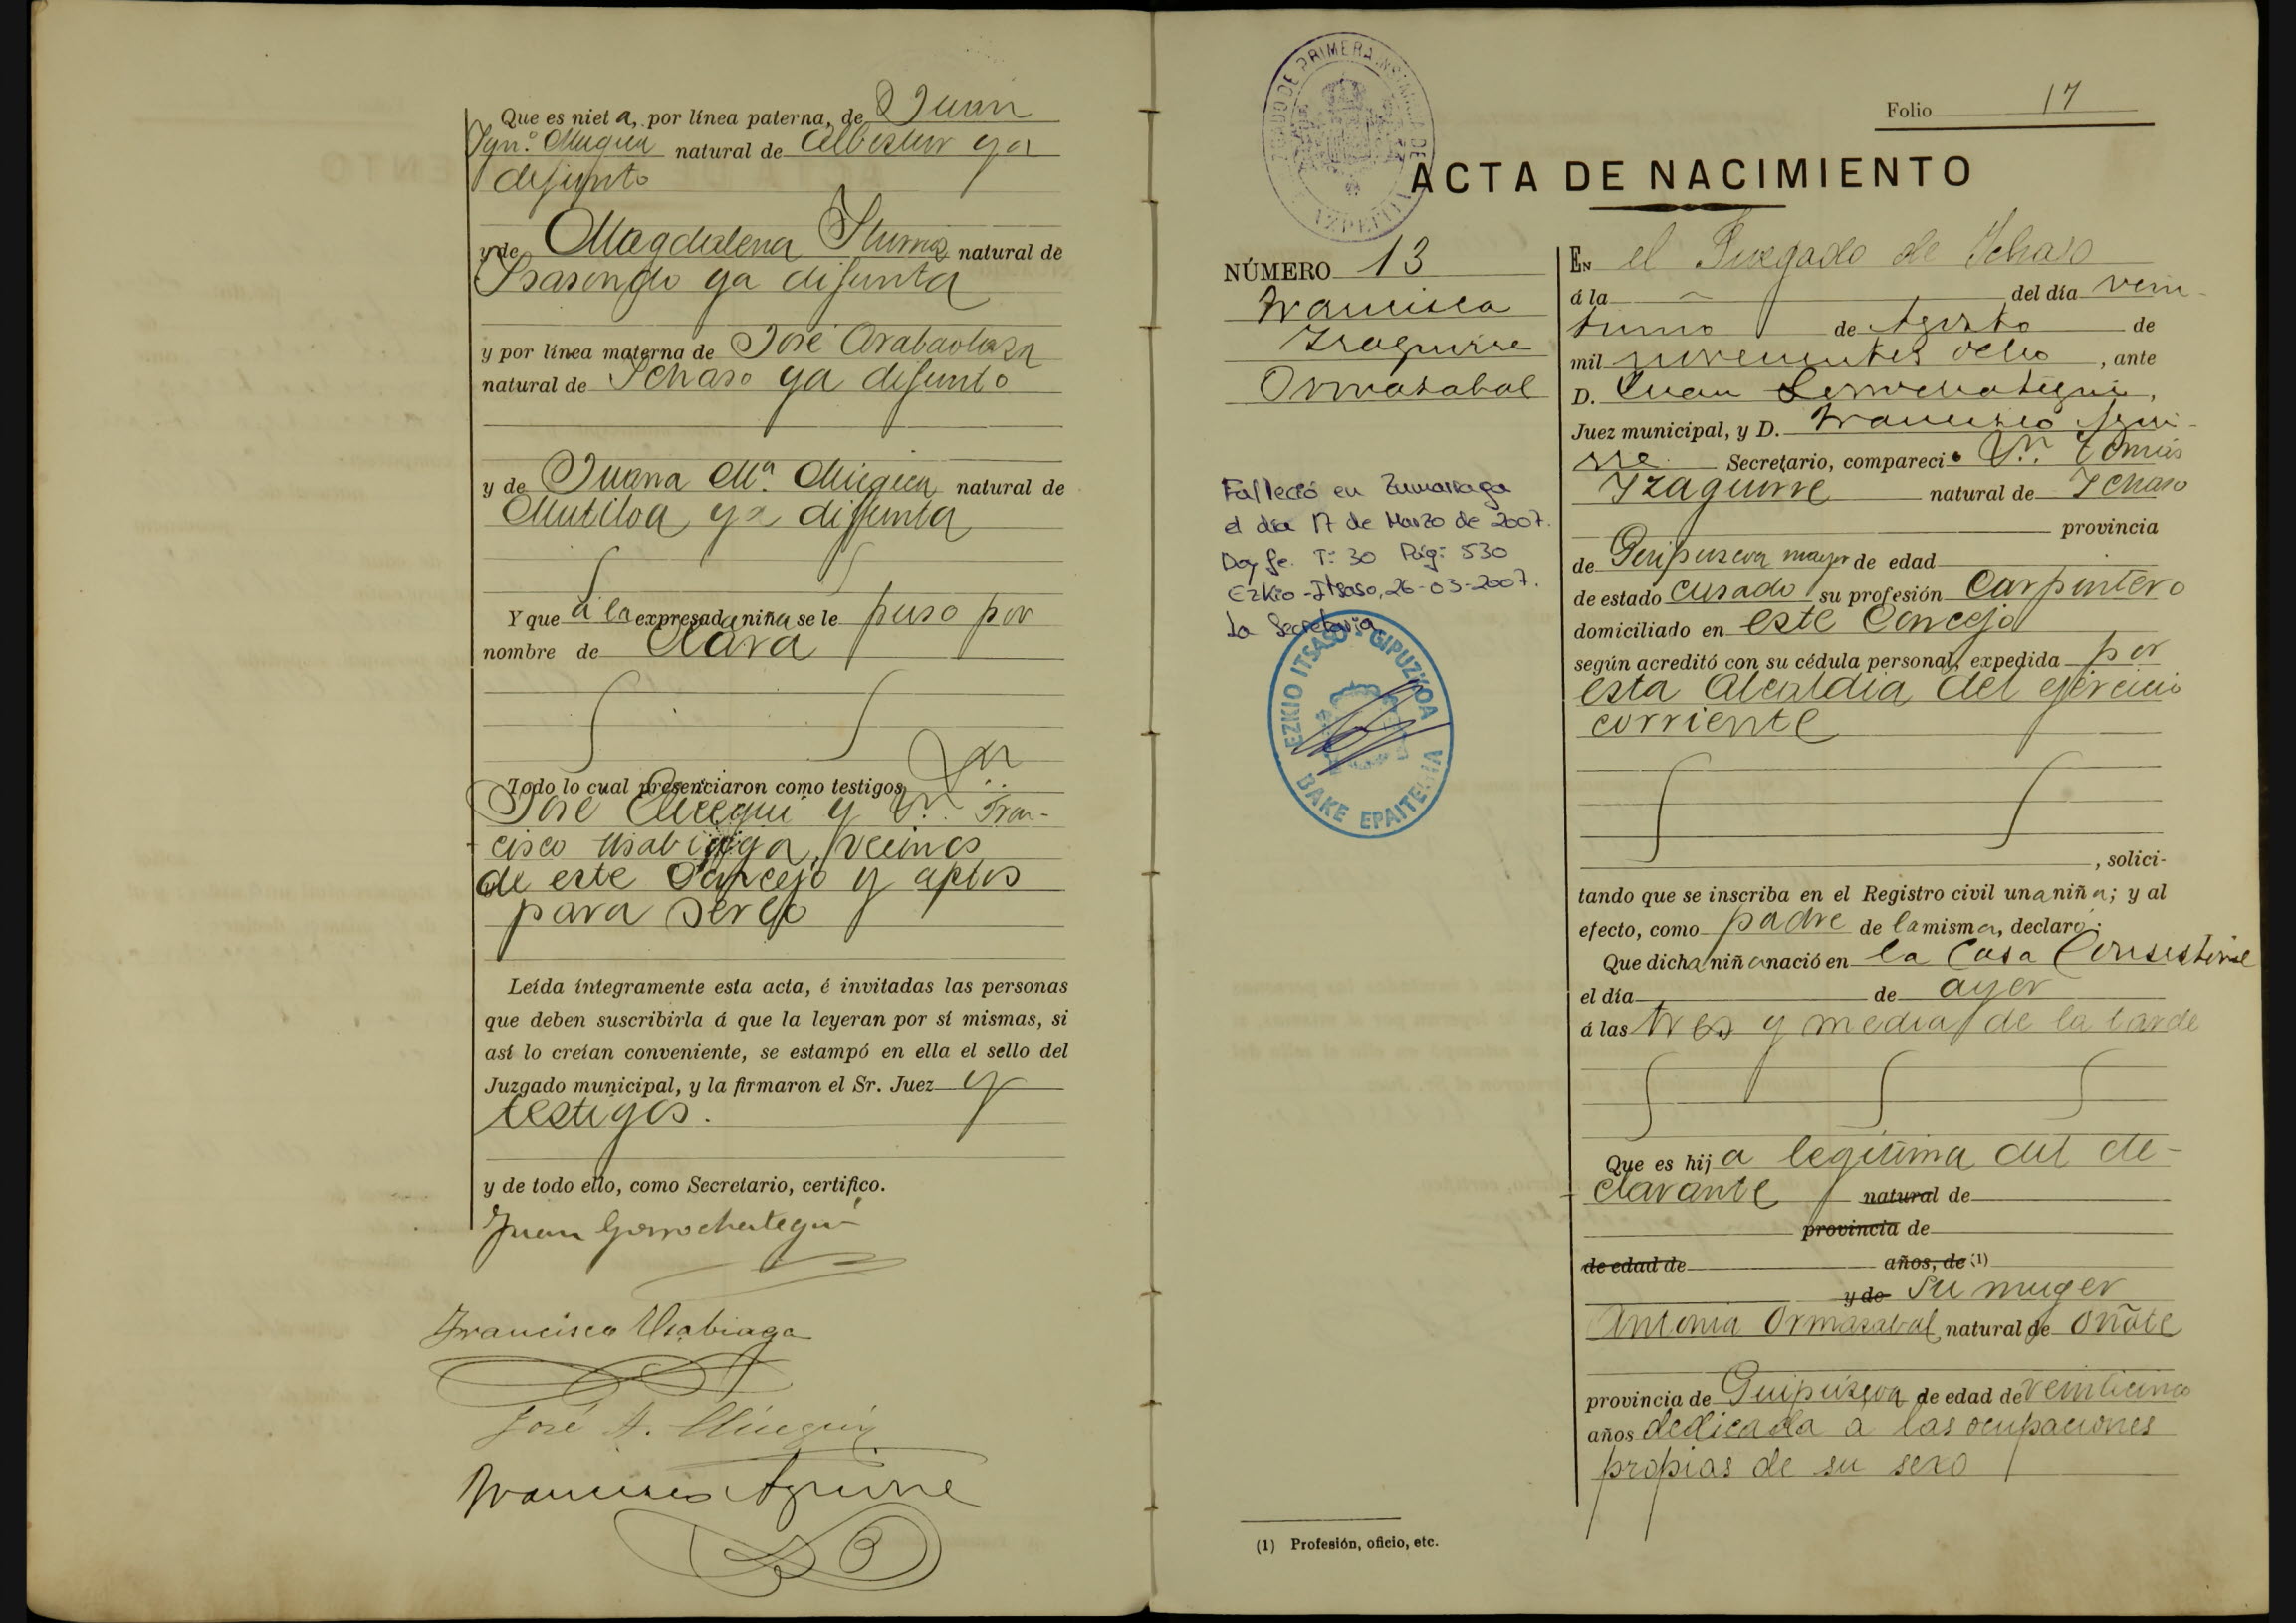 Que es nieta, por línea paterna, de Juan
Ygn.º Mugica natural de Albistur ya
difunto
y de Magdalena Yturrioz natural de
Ysasondo ya difunta
y por línea materna de José Arabaolaza
natural de Ychaso ya difunto
y de Juana M.ª Múgica natural de
Mutiloa ya difunta
Y que á la expresada niña se le puso por
nombre de Clara
Todo lo cual presenciaron como testigos, Dn.
José y Dn. Fran-
cisco Usabiaga, vecinos
de este Concejo y aptos
para serlo
Leída íntegramente esta acta, é invitadas las personas
que deben suscribirla á que la leyeran por sí mismas, si
así lo creían conveniente, se estampó en ella el sello del
Juzgado municipal, y la firmaron el Sr. Juez y
testigos.
y de todo ello, como Secretario, certifico.
Juan Gorrochategui
Francisco Usabiaga
José A.
Francisco Aguirre
JUZGADO DE PRIMERA INSTANCIA DE AZPEITIA
Folio 17
ACTA DE NACIMIENTO
NÚMERO 13
Francisca
Yzaguirre
Ormazabal
Falleció en Zumarraga
el día 17 de Marzo de 2007.
Doy fe. T: 30 Pág: 530
Ezkio-Itsaso, 26-03-2007.
La Secretaria
EZKIO ITSASO - GIPUZKOA
BAKE EPAITEGIA
En el Juzgado de Ychaso
á la del día vein-
tiuno de Agosto de
mil novecientos ocho, ante
D. Juan Gorrochategui,
Juez municipal, y D. Francisco Agui-
rre Secretario, compareció Dn. Tomás
Yzaguirre natural de Ychaso
provincia
de Guipuzcoa mayor de edad
de estado casado su profesión Carpintero
domiciliado en este Concejo
según acreditó con su cédula personal, expedida por
esta Alcaldia del ejercicio
corriente
, solici-
tando que se inscriba en el Registro civil una niña; y al
efecto, como padre de la misma, declaró:
Que dicha niña nació en la Casa Consistorial
el día de ayer
á las tres y media de la tarde
Que es hija legitima del de-
clarante natural de
provincia de
de edad de años, de (1)
y de su muger
Antonia Ormazabal natural de Oñate
provincia de Guipúzcoa de edad de veinticinco
años dedicada a las ocupaciones
propias de su sexo
(1) Profesión, oficio, etc.